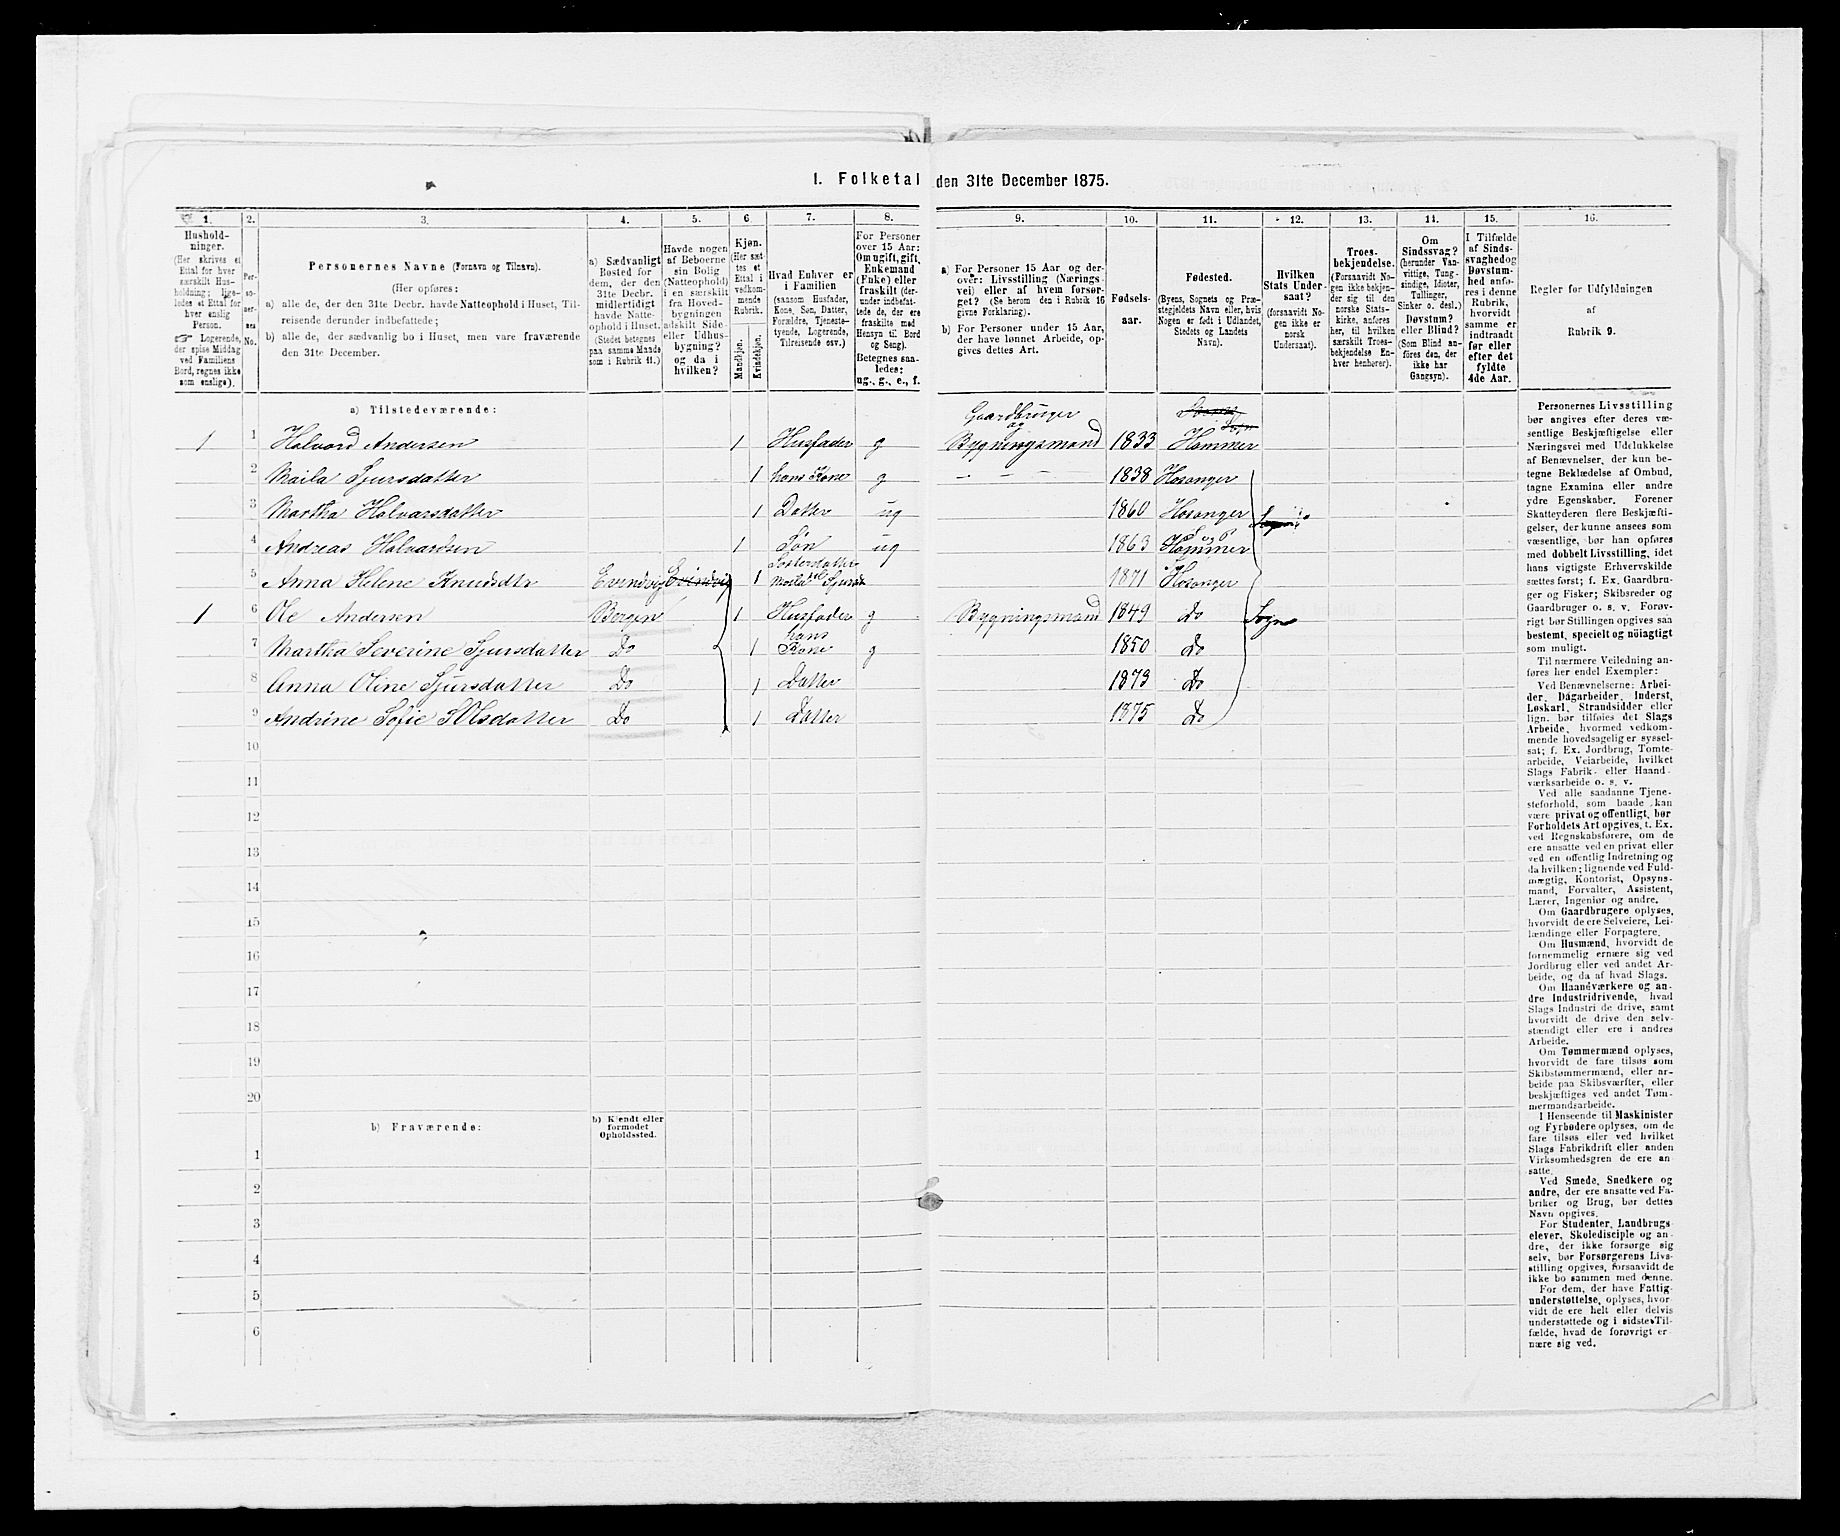 I. Folketal den 31te December 1875.
1. 2. 3. 4. 5. 6. 7. 8. 9. 10. 11. 12. 13. 14. 15. 16.
Hushold-
ninger.
(Her skrives et
Ettal for hver
særskilt Hus-
holdning; lige-
ledes et Ettal for
hver enslig
Person.
☞ Logerende,
der spise Middag
ved Familiens
Bord, regnes ikke
som enslige).
Per-
so-
ner-
nes
No.
Personernes Navne (Fornavn og Tilnavn).
(Her opføres:
a) alle de, der den 31te Decbr. havde Natteophold i Huset, Til-
reisende derunder indbefattede;
b) alle de, der sædvanlig bo i Huset, men vare fraværende
den 31te December.
a) Sædvanligt
Bosted for
dem, der den
31te Decbr.
midlertidigt
havde Natte-
ophold i Huset.
(Stedet betegnes
paa samme Maade
som i Rubrik 11.)
Havde nogen
af Beboerne
sin Bolig
(Natteophold)
i en særskilt
fra Hoved-
bygningen
adskilt Side-
eller Udhus-
bygning?
og da i
hvilken?
Kjøn.
(Her sæt-
tes et
Ettal i
vedkom-
mende
Rubrik.
Mandkjøn.
Kvindekjøn.
Hvad Enhver er
i Familien
(saasom Husfader,
Kone, Søn, Datter,
Forældre, Tjeneste-
tyende, Logerende,
Tilreisende osv.)
For Personer
over 15 Aar:
Om ugift, gift,
Enkemand
(Enke) eller
fraskilt (der-
under indbefat-
tede de, der ere
fraskilte med
Hensyn til Bord
og Seng).
Betegnes saa-
ledes:
ug., g., e., f.
a) For Personer 15 Aar og der-
over: Livsstilling (Nærings-
vei) eller af hvem forsør-
get? (Se herom den i Rubrik 16
givne Forklaring).
b) For Personer under 15 Aar,
der have lønnet Arbeide, op-
gives dettes Art.
Fødsels-
aar.
Fødested.
(Byens, Sognets og Præ-
stegjeldets Navn eller, hvis
Nogen er født i Udlandet,
Stedets og Landets
Navn).
Hvilken
Stats Under-
saat?
(forsaavidt No-
gen ikke er
norsk
Undersaat).
Troes-
bekjendelse.
(Forsaavidt No-
gen ikke bekjen-
der sig til den
norske Stats-
kirke, anføres
her, til hvilken
særskilt Troes-
bekjendelse En-
hver henhører).
Om
Sindssvag?
(herunder Van-
vittige, Tung-
sindige, Idioter,
Tullinger,
Sinker o. desl.)
Døvstum?
eller Blind?
(Som Blind an-
føres den, der
ikke har
Gangsyn).
I Tilfælde
af Sinds-
svaghed og
Døvstum-
hed anfø-
res i denne
Rubrik,
hvorvidt
samme er
indtraadt
før eller
efter det
fyldte
4de Aar.
Regler for Udfyldningen
af
Rubrik 9.
a) Tilstedeværende:
1 1 Halvard Andersen 1 Husfader g Gaardbruger og Bygningsmand 1833 Hammer
2 Maila Sjursdatter 1 hans Kone g — — 1838 Hosanger
3 Martha Halvarsdatter 1 Datter ug 1860 Hosanger
4 Andreas Halvardsen 1 Søn ug 1863 S og P Hammer
5 Anna Helene Knudsdtr Evindvig Evindvig 1 Søsterdatter 1871 Hosanger
1 6 Ole Andersen Bergen 1 Husfader g Bygningsmand 1849 Do Sogn
7 Martha Severine Sjursdatter Do 1 hans Kone g 1850 Do
8 Anna Oline Sjursdatter Do 1 Datter 1873 Do
9 Andrine Sofie Olsdatter Do 1 Datter 1875 Do
10
11
12
13
14
15
16
17
18
19
20
b) Fraværende:
b) Kjendt eller
formodet
Opholdssted.
1
2
3
4
5
6
Personernes Livsstilling
bør angives efter deres væ-
sentlige Beskjæftigelse eller
Næringsvei med Udelukkelse
af Benævnelser, der kun be-
tegne Beklædelse af Ombud,
tagne Examina eller andre
ydre Egenskaber. Forener
Skatteyderen flere Beskjæfti-
gelser, der kunne ansees som
væsentlige, bør han opføres
med dobbelt Livsstilling, idet
hans vigtigste Erhvervskilde
sættes først; f. Ex. Gaardbru-
ger og Fisker; Skibsreder og
Gaardbruger o. s. v. Forøv-
rigt bør Stillingen opgives saa
bestemt, specielt og nöiagtigt
som muligt.
Til nærmere Veiledning an-
føres her endel Exempler:
Ved Benævnelserne: Arbei-
der, Dagarbeider, Inderst,
Løskarl, Strandsidder eller
lign. bør tilføies det Slags
Arbeide, hvormed vedkom-
mende hovedsagelig er syssel-
sat; f. Ex. Jordbrug, Tomte-
arbeide, Veiarbeide, hvilket
Slags Fabrik- eller Haand-
værksarbeide o. s. v.
Ved alle saadanne Tjene-
steforhold, som baade kan
være privat og offentligt, bør
Forholdets Art opgives, t. Ex.
ved Regnskabsførere, om de
ere ansatte ved en privat eller
ved en offentlig Indretning og
da hvilken; lignende ved Fuld-
mægtig, Kontorist, Opsyns-
mand, Forvalter, Assistent,
Lærer, Ingeniør og andre.
Om Gaardbrugere oplyses,
hvorvidt de ere Selveiere, Lei-
lændinge eller Forpagtere.
Om Husmænd, hvorvidt de
fornemmelig ernære sig ved
Jordbrug eller ved andet Ar-
beide, og da af hvad Slags.
Om Haandværkere og an-
dre Industridrivende, hvad
Slags Industri de drive, samt
hvorvidt de drive den selv-
stændigt eller ere i andres
Arbeide.
Om Tømmermænd oplyses,
hvorvidt de fare tilsøs som
Skibstømmermænd, eller ar-
beide paa Skibsværfter, eller
beskjæftiges ved andet Tøm-
mermandsarbeide.
I Henseende til Maskinister
og Fyrbødere oplyses, om de
fare tilsøs eller ved hvilket
Slags Fabrikdrift eller anden
Virksomhedsgren de ere an-
satte.
Ved Smede, Snedkere og
andre, der ere ansatte ved Fa-
briker og Brug, bør dettes
Navn opgives.
For Studenter, Landbrugs-
elever, Skoledisciple og an-
dre, der ikke forsørge sig
selv, bør Forsørgerens Livs-
stilling opgives, forsaavidt de
ikke bo sammen med denne.
For dem, der have Fattig-
understøttelse, oplyses, hvor-
vidt de ere helt eller delvis
understøttede og i sidste Til-
fælde, hvad de forøvrigt er-
nære sig ved.